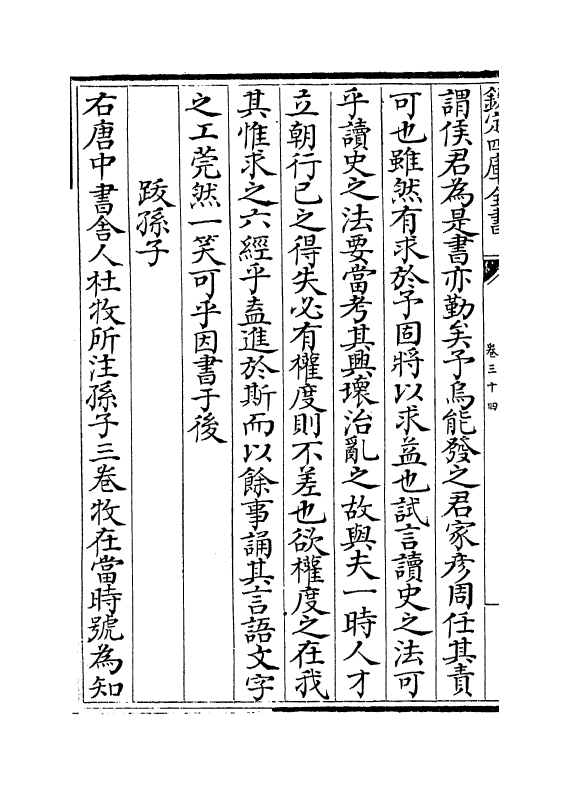 欽定四庫全書
卷三十四
謂侯君為是書亦勤矣予烏能發之君家彥周任其責
可也雖然有求於予固將以求益也試言讀史之法可
乎讀史之法要當考其興壞治亂之故與夫一時人才
立朝行已之得失必有權度則不差也欲權度之在我
其惟求之六經乎盍進於斯而以餘事誦其言語文字
之工莞然一笑可乎因書于後
跋孫子
右唐中書舍人杜牧所注孫子三卷牧在當時號為知